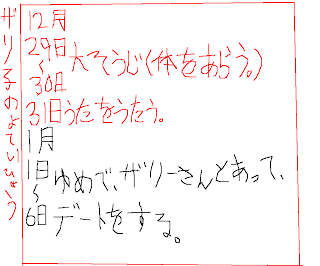 ザリ子のよていひょう
12月
29日
〜
30日
大そうじ(体をあらう。)
31日うたをうたう。
1月
1日
〜
6日
ゆめで、ザリーさんとあって、
デートをする。